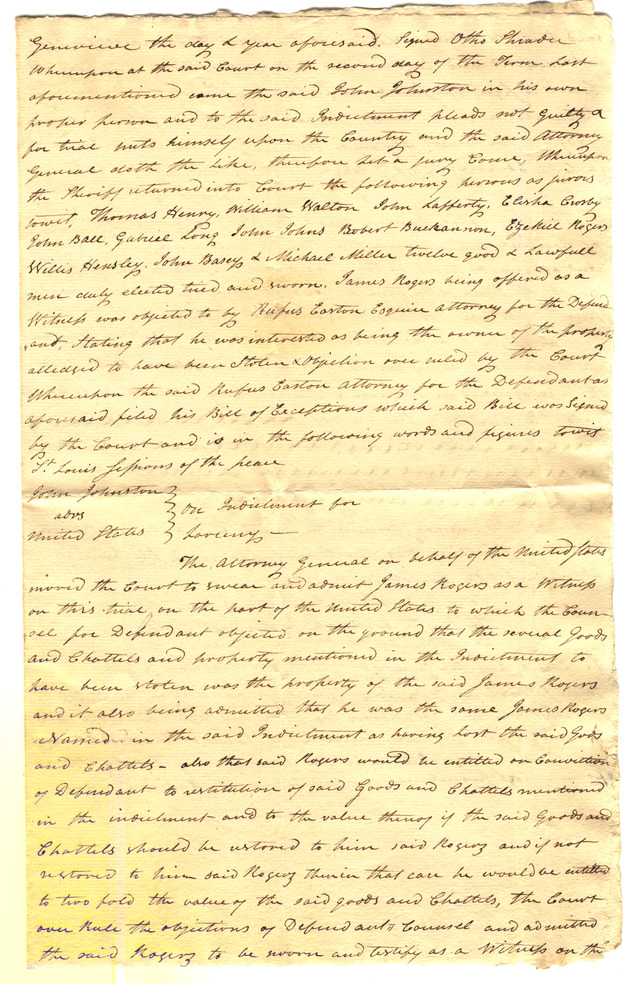 Genevieve the day & year aforesaid. Signed Otho Shrader
Whereupon at the said Court on the second day of the Term last
aforementioned came the said John Johnston in his own
proper person and to the said Indictment pleads not guilty &
for trial puts himself upon the Country and the said Attorney
General doth the like, therefore let a jury Come, Whereupon
the Sheriff returned into Court the following persons as jurors
towit, Thomas Henry, William Walton John Lafferty, Elisha Crosby
John Ball, Gabriel Long John Johns Robert Buckannon, Ezekiel Rogers
Willis Hensley, John Bareys & Michael Miller twelve good & Lawfull
men duly elected tried and sworn. James Rogers being offered as a
Witness was objected to by Rufus Easton Esquire attorney for the Defend
ant, Stating that he was interested as being the owner of the property
alledged to have been Stolen & Objection over ruled by the Court
Whereupon the said Rufus Easton Attorney for the Defendant as
aforesaid filed his Bill of Exceptions which said Bill was Signed
by the Court and is in the following words and figures towit
St. Louis Sessions of the peace
John Johnston
ads } On Indictment for
United States Larceny —
The Attorney General on behalf of the United States
moved the Court to swear and admit James Rogers as a Witness
on this trial, on the part of the United States to which the Coun-
sel for Defendant objected on the ground that the several Goods
and Chattels and property mentioned in the Indictment to
have been stolen was the property of the said James Rogers
and it also being admitted that he was the same James Rogers
Named in the said Indictment as having lost the said Goods
and Chattels - also that said Rogers would be entitled on Conviction
of Defendant to restitution of said Goods and Chattels mentioned
in the indictment and to the value thereof if the said Goods and
Chattels should be restored to him said Rogers and if not
restored to him said Rogers therein that case he would be entitled
to two fold the value of the said goods and Chattels, the Court
over Rule the objections of Defendants Counsel and admitted
the said Rogers to be sworn and testify as a Witness on the